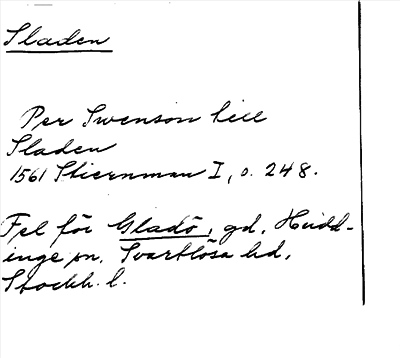 Sladen
Per Swenson till
Sladen
1561 Stiernman I, s. 248.
Fel för Gladö, gd, Hudd-
inge sn. Svartlösa hd,
Stockh. l.